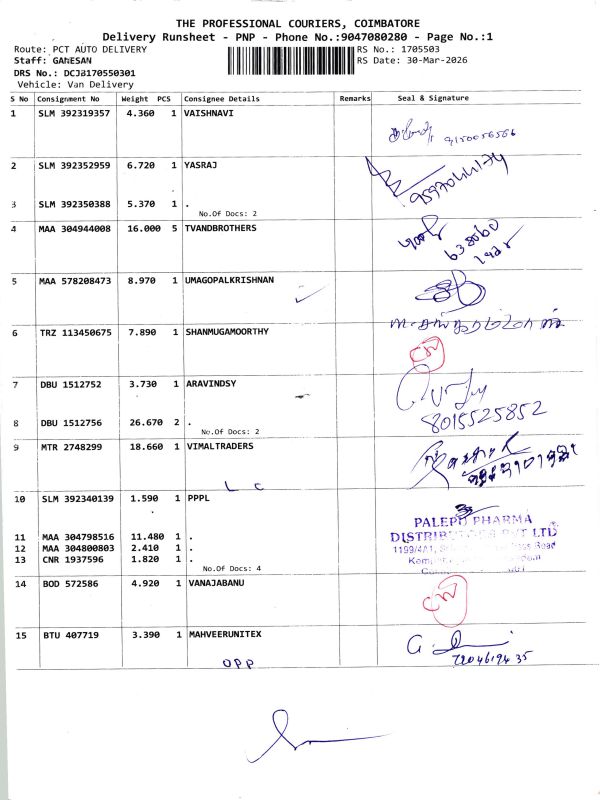 THE PROFESSIONAL COURIERS, COIMBATORE
Delivery Runsheet - PNP - Phone No.:9047080280 - Page No.:1
Route: PCT AUTO DELIVERY
RS No.: 1705503
Staff: GANESAN
RS Date: 30-Mar-2026
DRS No.: DCJB170550301
Vehicle: Van Delivery
S No Consignment No Weight PCS Consignee Details Remarks Seal & Signature
1 SLM 392319357 4.360 1 VAISHNAVI
9150056566
2 SLM 392352959 6.720 1 YASRAJ
9597044174
3 SLM 392350388 5.370 1 .
No.Of Docs: 2
4 MAA 304944008 16.000 5 TVANDBROTHERS
5 MAA 578208473 8.970 1 UMAGOPALKRISHNAN
6 TRZ 113450675 7.890 1 SHANMUGAMOORTHY
CN
7 DBU 1512752 3.730 1 ARAVINDSY
8015525852
8 DBU 1512756 26.670 2 .
No.Of Docs: 2
9 MTR 2748299 18.660 1 VIMALTRADERS
L C
10 SLM 392340139 1.590 1 PPPL
PALEPU PHARMA
11 MAA 304798516 11.480 1 .
DISTRIBUTORS PVT LTD
12 MAA 304800803 2.410 1 .
1199/4A1, Road
13 CNR 1937596 1.820 1 .
No.Of Docs: 4
14 BOD 572586 4.920 1 VANAJABANU
CN
15 BTU 407719 3.390 1 MAHVEERUNITEX
OPP
7204619435